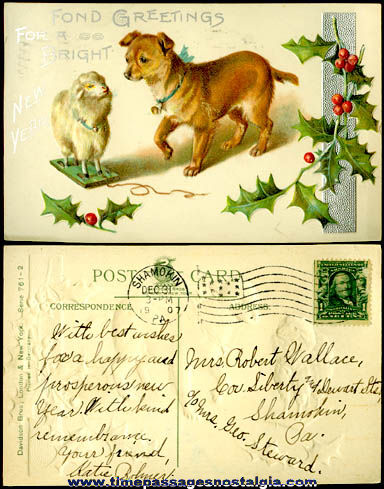 FOND GREETINGS
FOR A
BRIGHT
NEW
YEAR
Davidson Bros. London & New York. Serie 761-2
POST CARD
CORRESPONDENCE
ADDRESS
SHAMOKIN
DEC 31
3-PM
1907
PA.
With best wishes
for a happy and
prosperous new
Year. With kind
remembrance.
Your friend
Katie
Mrs. Robert Wallace,
Cor. Liberty and Dewart Sts.
Shamokin,
c/o Mrs. Geo. Steward. Pa.
www.timepassagesnostalgia.com